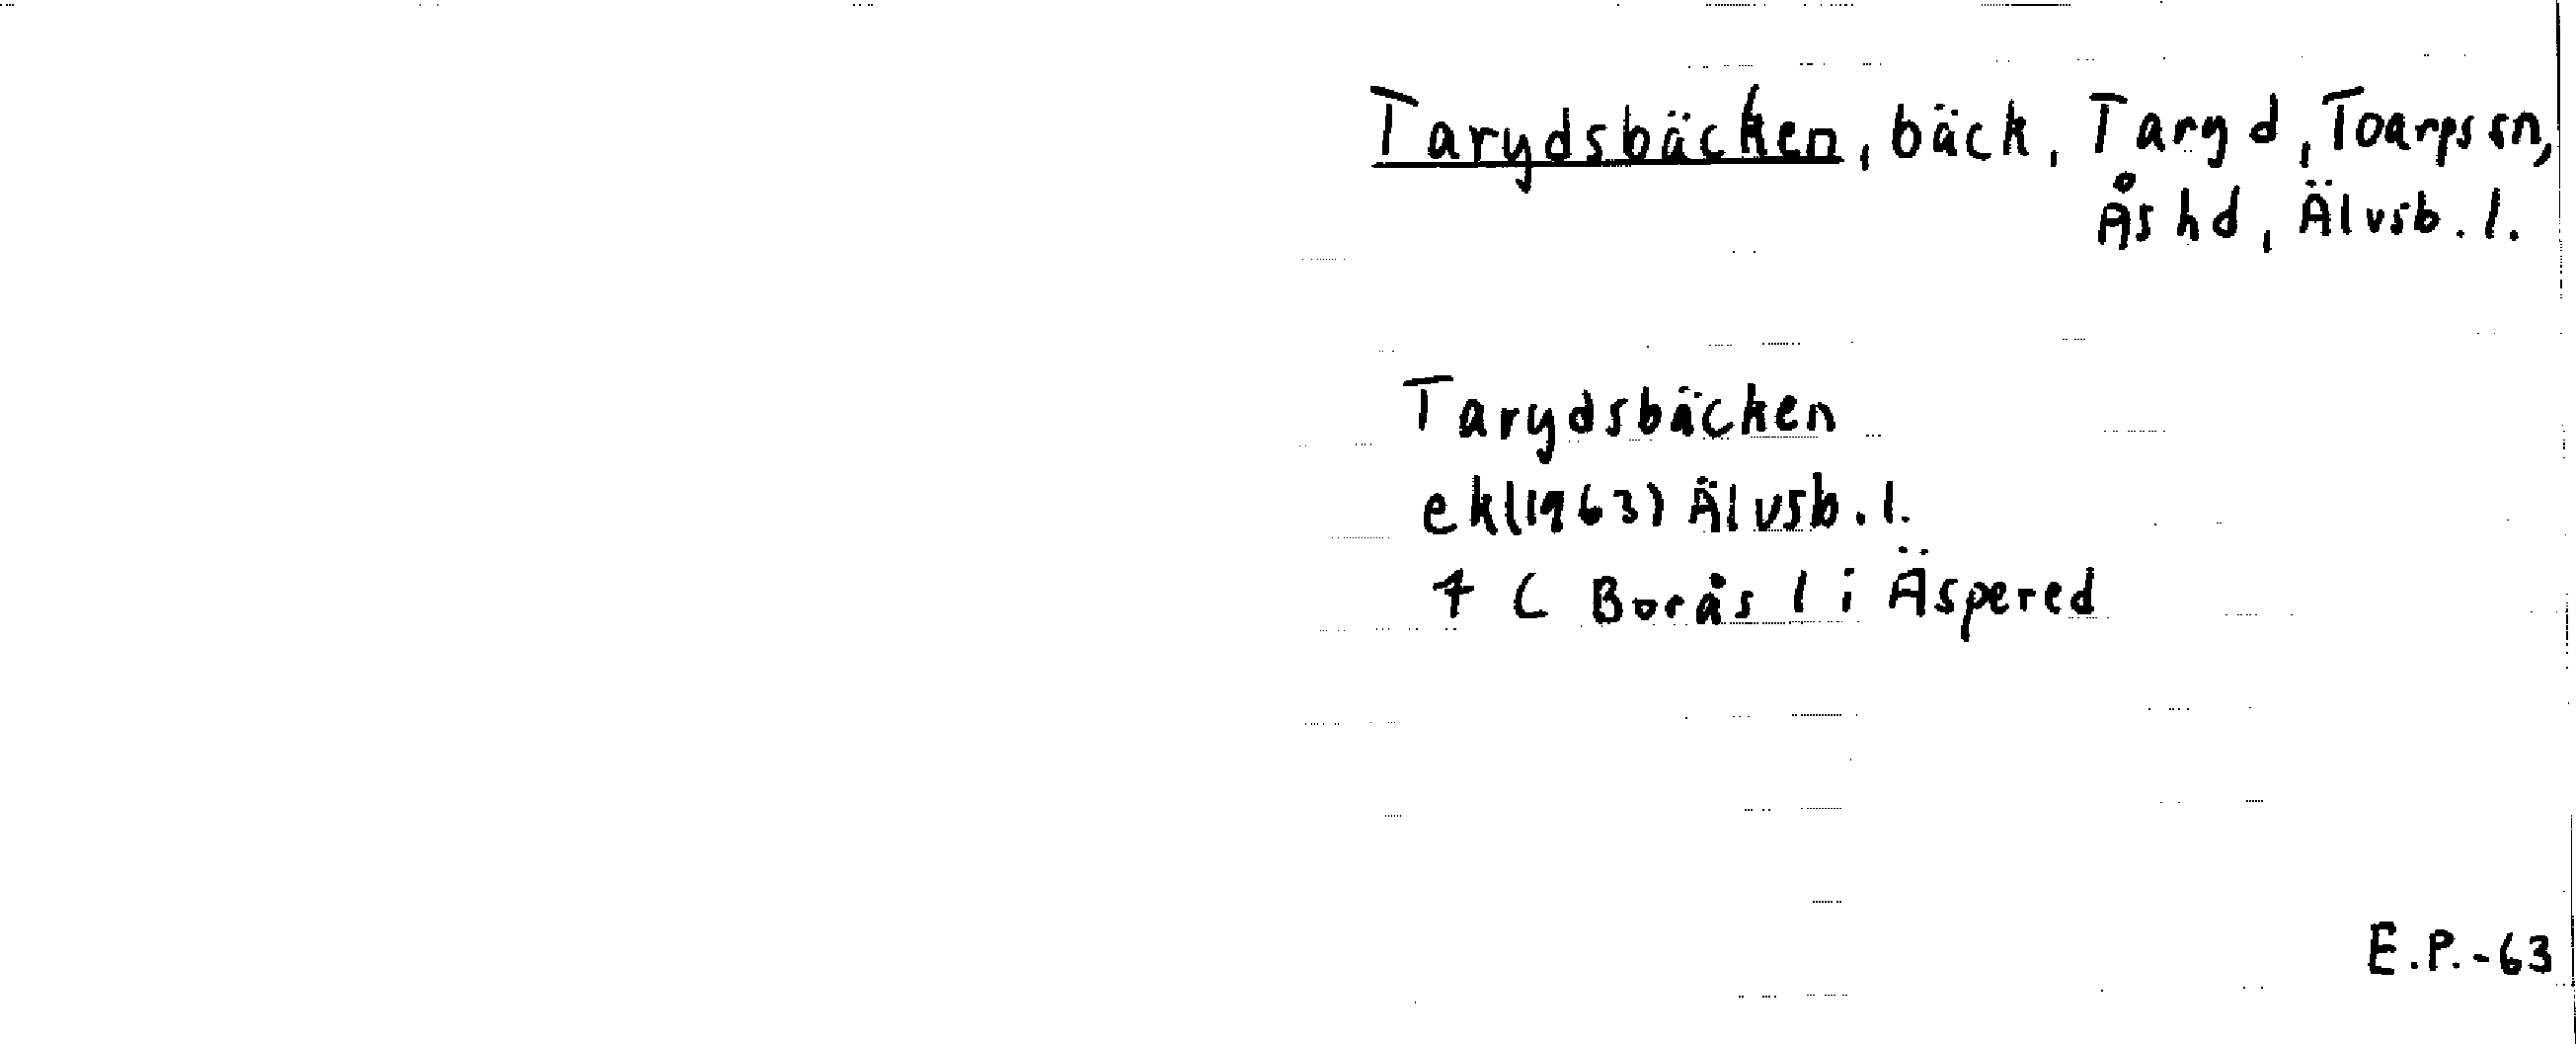 Tarydsbäcken, bäck, Taryd, Toarps sn,
Ås hd, Älvsb. l.
Tarydsbäcken
ek(1963) Älvsb. l.
7 C Borås l i Äspered
E.P.-63